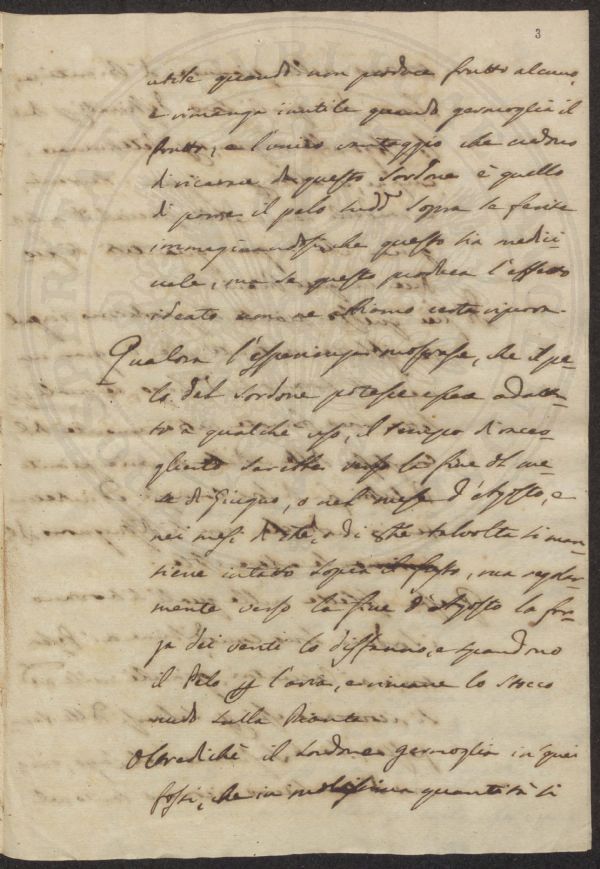 3
utile quando non produce frutto alcuno,
e rimanga inutile quando germoglia il
frutto, e l'unico vantaggio che credono
di ricavare da questo Sordone è quello
di porre il pelo sudº sopra le ferite
immaginandosi, che questo sia medici-
nale, ma se questo produca l'effetto
ideato non ne abiamo certa riprova.
Qualora l'esperienza mostrasse, che il pe-
lo del Sordone potesse essere adatta-
to a qualche uso, il tempo di racco-
glierlo sarebbe verso la fine di me-
se di Giugno, o nel mese d'Agosto, e
nei mesi di talvolta si man-
tiene intatto sopra il fusto, ma regolar-
mente verso la fine d'Agosto la for-
za dei venti lo disfanno, e spandono
il Pelo per l'aria, e rimane lo stocco
nudo sulla Pianta.
Oltredichè il Sordone germoglia in quei
fossi, che in moltissima quantità si